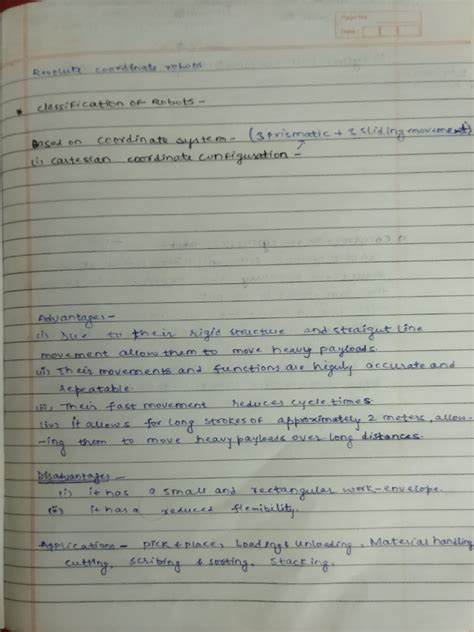 Page No.
Date
Revolute coordinate robots
* Classification of Robots -
Based on coordinate system - (3 prismatic + 3 sliding movement)
(i) cartesian coordinate configuration -
Advantages -
(i) Due to their rigid structure and straigut line
movement allows them to move heavy payloads.
(ii) Their movements and functions are higuly accurate and
repeatable.
(iii) Their fast movement reduces cycle times.
(iv) it allows for long strokes of approximately 2 meters, allow-
-ing them to move heavy payloads over long distances.
Disadvantages -
(i) it has a small and rectangular work-envelope.
(ii) it has a reduces flexibility.
Application - pick & place, Loading & unloading, Material handling
cutting, scribing & sorting, stacking.